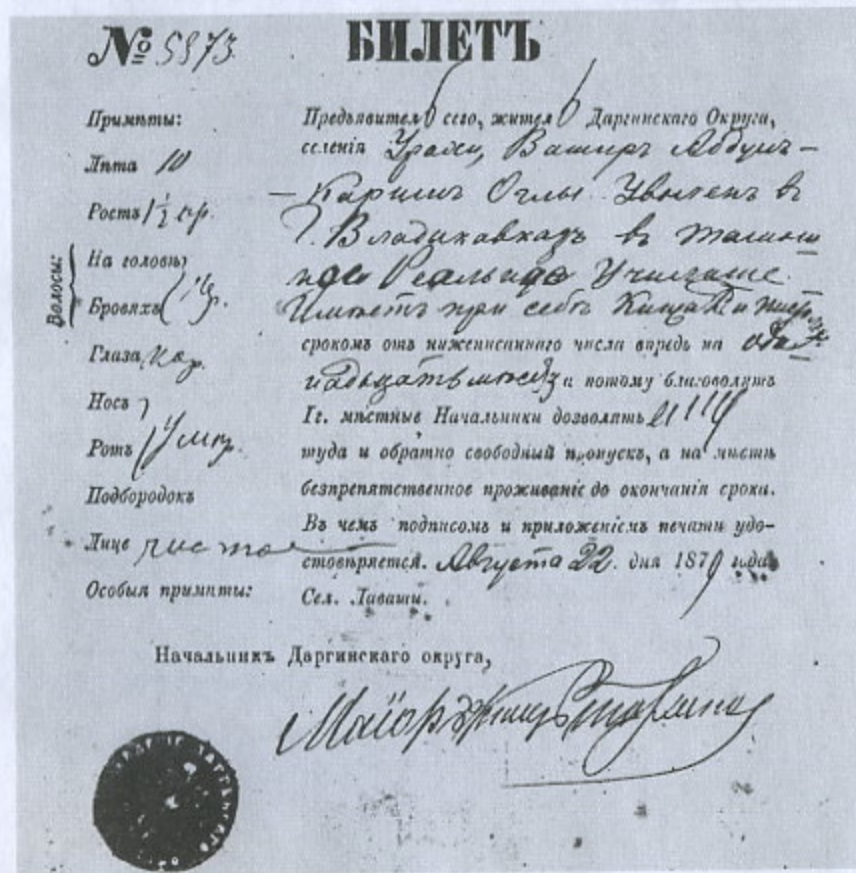 № 5873
БИЛЕТЪ
Примѣты:
Лѣта 10
Ростъ 1½ ар.
Волосы:
На головѣ
Бровяхъ
Глаза кар.
Носъ
Ротъ умѣр.
Подбородокъ
Лице чистое
Особыя примѣты:
Предъявитель сего, житель Даргинскаго Округа,
селенія Урахи, Башир Абдул-
- Карим Оглы уволенъ в
г. Владикавказъ въ
Реальное Училище
Имѣетъ при себѣ
срокомъ отъ нижеписаннаго числа впредь на
надцать мѣсяц а потому благоволятъ
Гг. мѣстные Начальники дозволять ему
туда и обратно свободный пропускъ, а на мѣстѣ
безпрепятственное проживаніе до окончанія срока.
Въ чемъ подписомъ и приложеніемъ печати удо-
стовѣряется. Августа 22 дня 1879 года
Сел. Леваши.
Начальникъ Даргинскаго округа,
Маіоръ